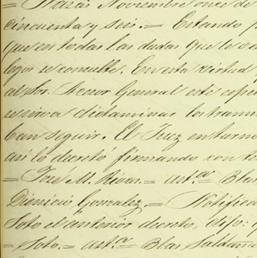 = Marzo Noviembre once de
cincuenta y seis. = Estando p
que en todas las dudas que le o
lego se consulte. En esta virtud
al Sor. Asesor General este espe
se sirva dictaminar los tram
ban seguir. El Juez en turno
así lo decretó firmando con t
= José M. Rivas. = ast.ª Blas
Dionicio Gonzalez. = Notific
Soto el anterior decreto, dijo: q
= Soto. = ast.ª Blas Saldaña